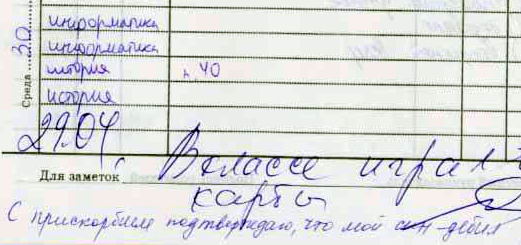 Среда 30
информатика
информатика
история п. 40
история
29.04
Для заметок В классе играл в
карты
С прискорбием подтверждаю, что мой сын - дебил